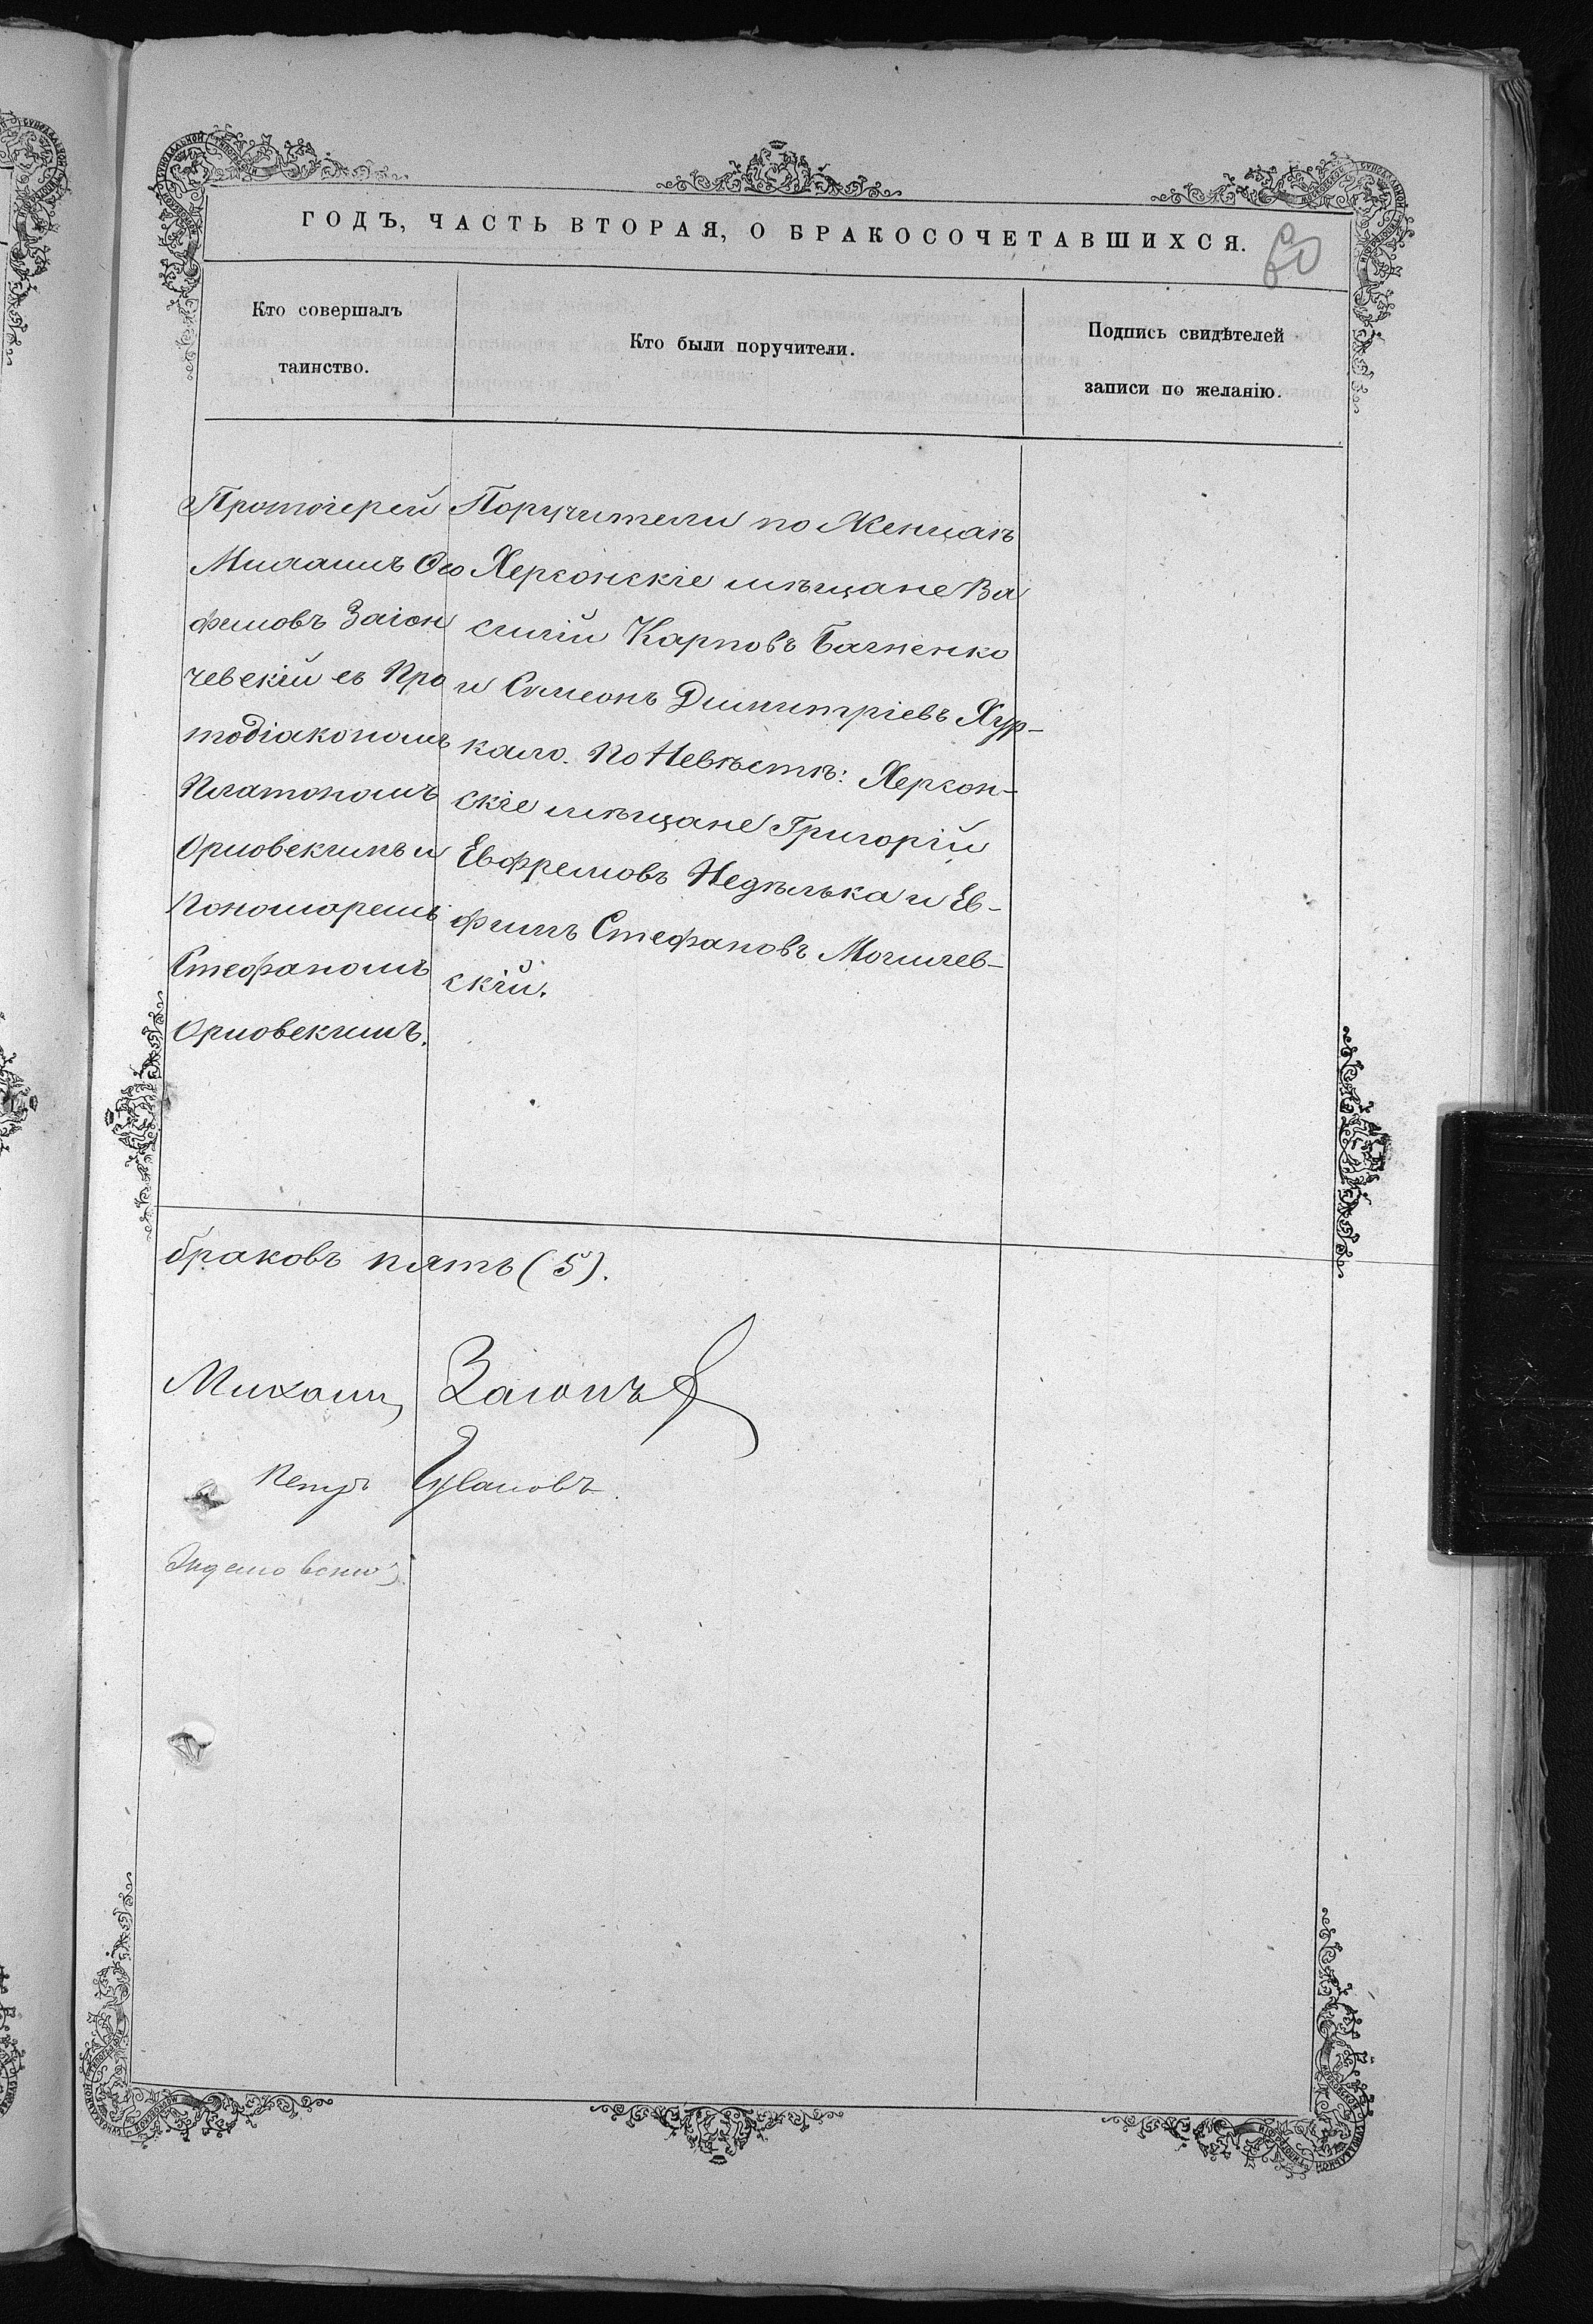 ГОДЪ, ЧАСТЬ ВТОРАЯ, О БРАКОСОЧЕТАВШИХСЯ.
60
Кто совершалъ
таинство.
Кто были поручители.
Подпись свидѣтелей
записи по желанію.
Протоіерей
Михаилъ Ѳео
филовъ Заіон
чевскій съ Про
тодіакономъ
Платономъ
Орловскимъ и
Пономаремъ
Стефаномъ
Орловскимъ.
Поручители по Женихѣ
Херсонскіе мѣщане Ва
силій Карповъ Багненко
и Симеонъ Димитріевъ Хур-
кало. По Невѣстѣ: Херсон-
скіе мѣщане Григорій
Евфремовъ Недѣлька и Ев-
фимъ Стефановъ Могилев-
скій.
браковъ пять (5).
Михаилъ Заіонч
Петръ